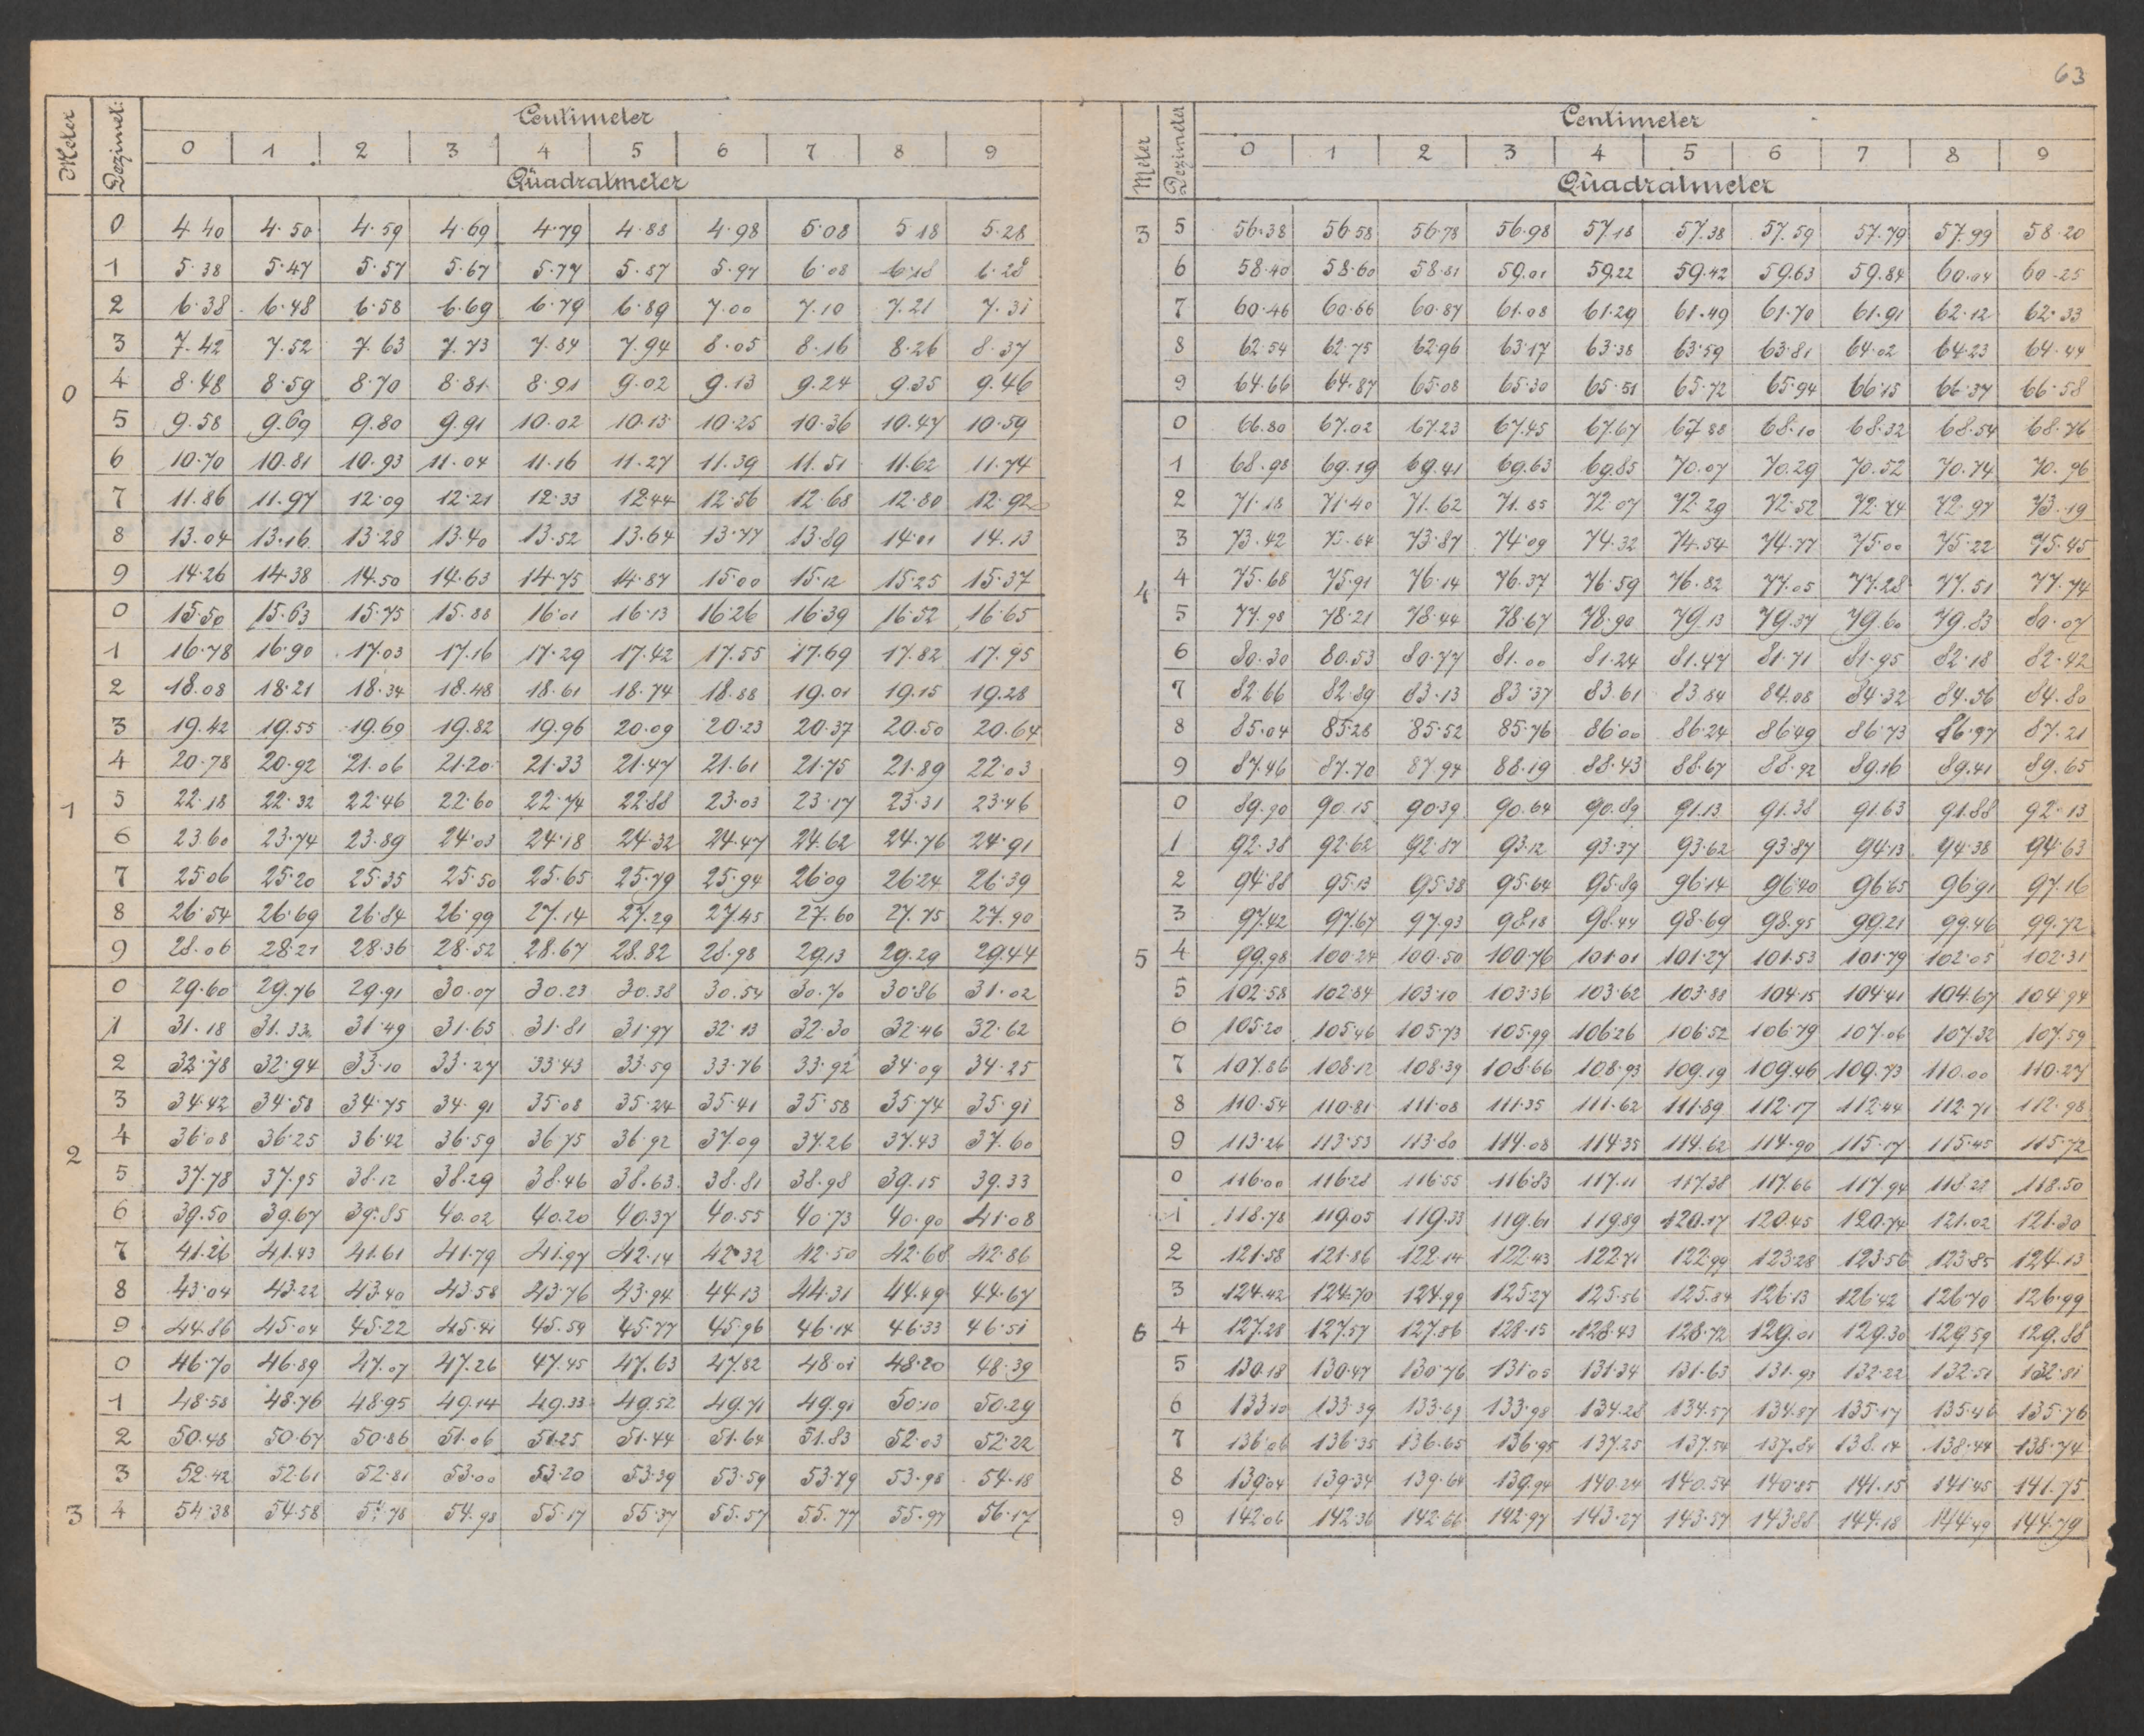 63
Meter Dezimet: Centimeter
0 1 2 3 4 5 6 7 8 9
Quadratmeter
0 4.40 4.50 4.59 4.69 4.79 4.88 4.98 5.08 5.18 5.28
1 5.38 5.47 5.57 5.67 5.77 5.87 5.97 6.08 6.18 6.28
2 6.38 6.48 6.58 6.69 6.79 6.89 7.00 7.10 7.21 7.31
3 7.42 7.52 7.63 7.73 7.84 7.94 8.05 8.16 8.26 8.37
0 4 8.48 8.59 8.70 8.81 8.91 9.02 9.13 9.24 9.35 9.46
5 9.58 9.69 9.80 9.91 10.02 10.13 10.25 10.36 10.47 10.59
6 10.70 10.81 10.93 11.04 11.16 11.27 11.39 11.51 11.62 11.74
7 11.86 11.97 12.09 12.21 12.33 12.44 12.56 12.68 12.80 12.92
8 13.04 13.16 13.28 13.40 13.52 13.64 13.77 13.89 14.01 14.13
9 14.26 14.38 14.50 14.63 14.75 14.87 15.00 15.12 15.25 15.37
0 15.50 15.63 15.75 15.88 16.01 16.13 16.26 16.39 16.52 16.65
1 16.78 16.90 17.03 17.16 17.29 17.42 17.55 17.69 17.82 17.95
2 18.08 18.21 18.34 18.48 18.61 18.74 18.88 19.01 19.15 19.28
3 19.42 19.55 19.69 19.82 19.96 20.09 20.23 20.37 20.50 20.64
4 20.78 20.92 21.06 21.20 21.33 21.47 21.61 21.75 21.89 22.03
1 5 22.18 22.32 22.46 22.60 22.74 22.88 23.03 23.17 23.31 23.46
6 23.60 23.74 23.89 24.03 24.18 24.32 24.47 24.62 24.76 24.91
7 25.06 25.20 25.35 25.50 25.65 25.79 25.94 26.09 26.24 26.39
8 26.54 26.69 26.84 26.99 27.14 27.29 27.45 27.60 27.75 27.90
9 28.06 28.21 28.36 28.52 28.67 28.82 28.98 29.13 29.29 29.44
0 29.60 29.76 29.91 30.07 30.23 30.38 30.54 30.70 30.86 31.02
1 31.18 31.33 31.49 31.65 31.81 31.97 32.13 32.30 32.46 32.62
2 32.78 32.94 33.10 33.27 33.43 33.59 33.76 33.92 34.09 34.25
3 34.42 34.58 34.75 34.91 35.08 35.24 35.41 35.58 35.74 35.91
2 4 36.08 36.25 36.42 36.59 36.75 36.92 37.09 37.26 37.43 37.60
5 37.78 37.95 38.12 38.29 38.46 38.63 38.81 38.98 39.15 39.33
6 39.50 39.67 39.85 40.02 40.20 40.37 40.55 40.73 40.90 41.08
7 41.26 41.43 41.61 41.79 41.97 42.14 42.32 42.50 42.68 42.86
8 43.04 43.22 43.40 43.58 43.76 43.94 44.13 44.31 44.49 44.67
9 44.86 45.04 45.22 45.41 45.59 45.77 45.96 46.14 46.33 46.51
0 46.70 46.89 47.07 47.26 47.45 47.63 47.82 48.01 48.20 48.39
1 48.58 48.76 48.95 49.14 49.33 49.52 49.71 49.91 50.10 50.29
2 50.48 50.67 50.86 51.06 51.25 51.44 51.64 51.83 52.03 52.22
3 52.42 52.61 52.81 53.00 53.20 53.39 53.59 53.79 53.98 54.18
3 4 54.38 54.58 54.78 54.98 55.17 55.37 55.57 55.77 55.97 56.17
Meter Dezimeter Centimeter
0 1 2 3 4 5 6 7 8 9
Quadratmeter
3 5 56.38 56.58 56.78 56.98 57.18 57.38 57.59 57.79 57.99 58.20
6 58.40 58.60 58.81 59.01 59.22 59.42 59.63 59.84 60.04 60.25
7 60.46 60.66 60.87 61.08 61.29 61.49 61.70 61.91 62.12 62.33
8 62.54 62.75 62.96 63.17 63.38 63.59 63.81 64.02 64.23 64.44
9 64.66 64.87 65.08 65.30 65.51 65.72 65.94 66.15 66.37 66.58
0 66.80 67.02 67.23 67.45 67.67 67.88 68.10 68.32 68.54 68.76
1 68.98 69.19 69.41 69.63 69.85 70.07 70.29 70.52 70.74 70.96
2 71.18 71.40 71.62 71.85 72.07 72.29 72.52 72.74 72.97 73.19
3 73.42 73.64 73.87 74.09 74.32 74.54 74.77 75.00 75.22 75.45
4 4 75.68 75.91 76.14 76.37 76.59 76.82 77.05 77.28 77.51 77.74
5 77.98 78.21 78.44 78.67 78.90 79.13 79.37 79.60 79.83 80.07
6 80.30 80.53 80.77 81.00 81.24 81.47 81.71 81.95 82.18 82.42
7 82.66 82.89 83.13 83.37 83.61 83.84 84.08 84.32 84.56 84.80
8 85.04 85.28 85.52 85.76 86.00 86.24 86.49 86.73 86.97 87.21
9 87.46 87.70 87.94 88.19 88.43 88.67 88.92 89.16 89.41 89.65
0 89.90 90.15 90.39 90.64 90.89 91.13 91.38 91.63 91.88 92.13
1 92.38 92.62 92.87 93.12 93.37 93.62 93.87 94.13 94.38 94.63
2 94.88 95.13 95.38 95.64 95.89 96.14 96.40 96.65 96.91 97.16
3 97.42 97.67 97.93 98.18 98.44 98.69 98.95 99.21 99.46 99.72
5 4 99.98 100.24 100.50 100.76 101.01 101.27 101.53 101.79 102.05 102.31
5 102.58 102.84 103.10 103.36 103.62 103.88 104.15 104.41 104.67 104.94
6 105.20 105.46 105.73 105.99 106.26 106.52 106.79 107.06 107.32 107.59
7 107.86 108.12 108.39 108.66 108.93 109.19 109.46 109.73 110.00 110.27
8 110.54 110.81 111.08 111.35 111.62 111.89 112.17 112.44 112.71 112.98
9 113.26 113.53 113.80 114.08 114.35 114.62 114.90 115.17 115.45 115.72
0 116.00 116.28 116.55 116.83 117.11 117.38 117.66 117.94 118.22 118.50
1 118.78 119.05 119.33 119.61 119.89 120.17 120.45 120.74 121.02 121.30
2 121.58 121.86 122.14 122.43 122.71 122.99 123.28 123.56 123.85 124.13
3 124.42 124.70 124.99 125.27 125.56 125.84 126.13 126.42 126.70 126.99
6 4 127.28 127.57 127.86 128.15 128.43 128.72 129.01 129.30 129.59 129.88
5 130.18 130.47 130.76 131.05 131.34 131.63 131.93 132.22 132.51 132.81
6 133.10 133.39 133.69 133.98 134.28 134.57 134.87 135.17 135.46 135.76
7 136.06 136.35 136.65 136.95 137.25 137.54 137.84 138.14 138.44 138.74
8 139.04 139.34 139.64 139.94 140.24 140.54 140.85 141.15 141.45 141.75
9 142.06 142.36 142.66 142.97 143.27 143.57 143.88 144.18 144.49 144.79